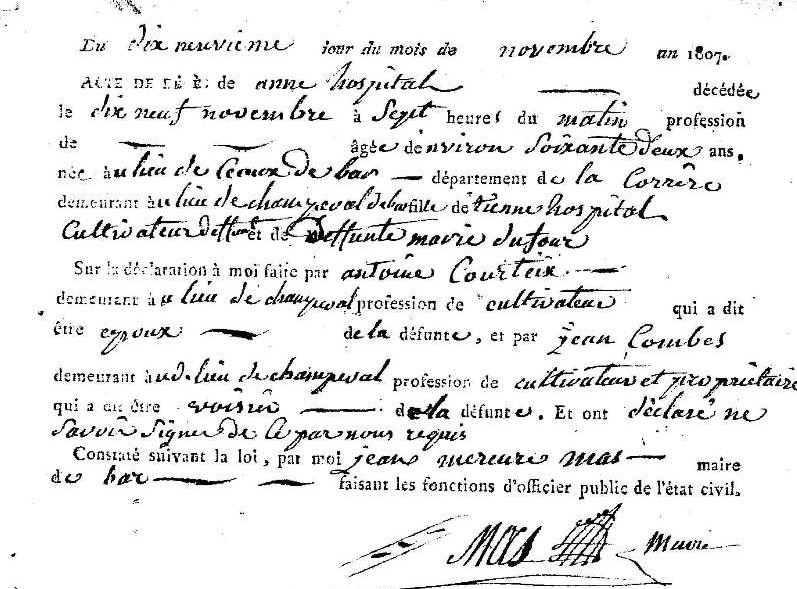 Du dix neuvieme jour du mois de novembre an 1807.
ACTE DE DÉCÈS de anne hospital décédée
le dix neuf novembre à Sept heures du matin profession
de âgée denviron Soixante deux ans,
née à au lieu de de bar département de la Corrèze
demeurant à au lieu de champeval de bar fille de étienne hospital
Cultivateur deffunt et de Deffunte marie dufour
Sur la déclaration à moi faite par antoine Courteix
demeurant à au lieu de champeval profession de cultivateur qui a dit
être epoux de la défunte, et par jean Combes
demeurant à aud. lieu de champeval profession de cultivateur et proprietaire
qui a dit être voisin de la défunte. Et ont déclaré ne
Savoir Signer de Ce par nous requis
Constaté suivant la loi, par moi jean mercure mas maire
de bar faisant les fonctions d'officier public de l'état civil.
Mas Maire